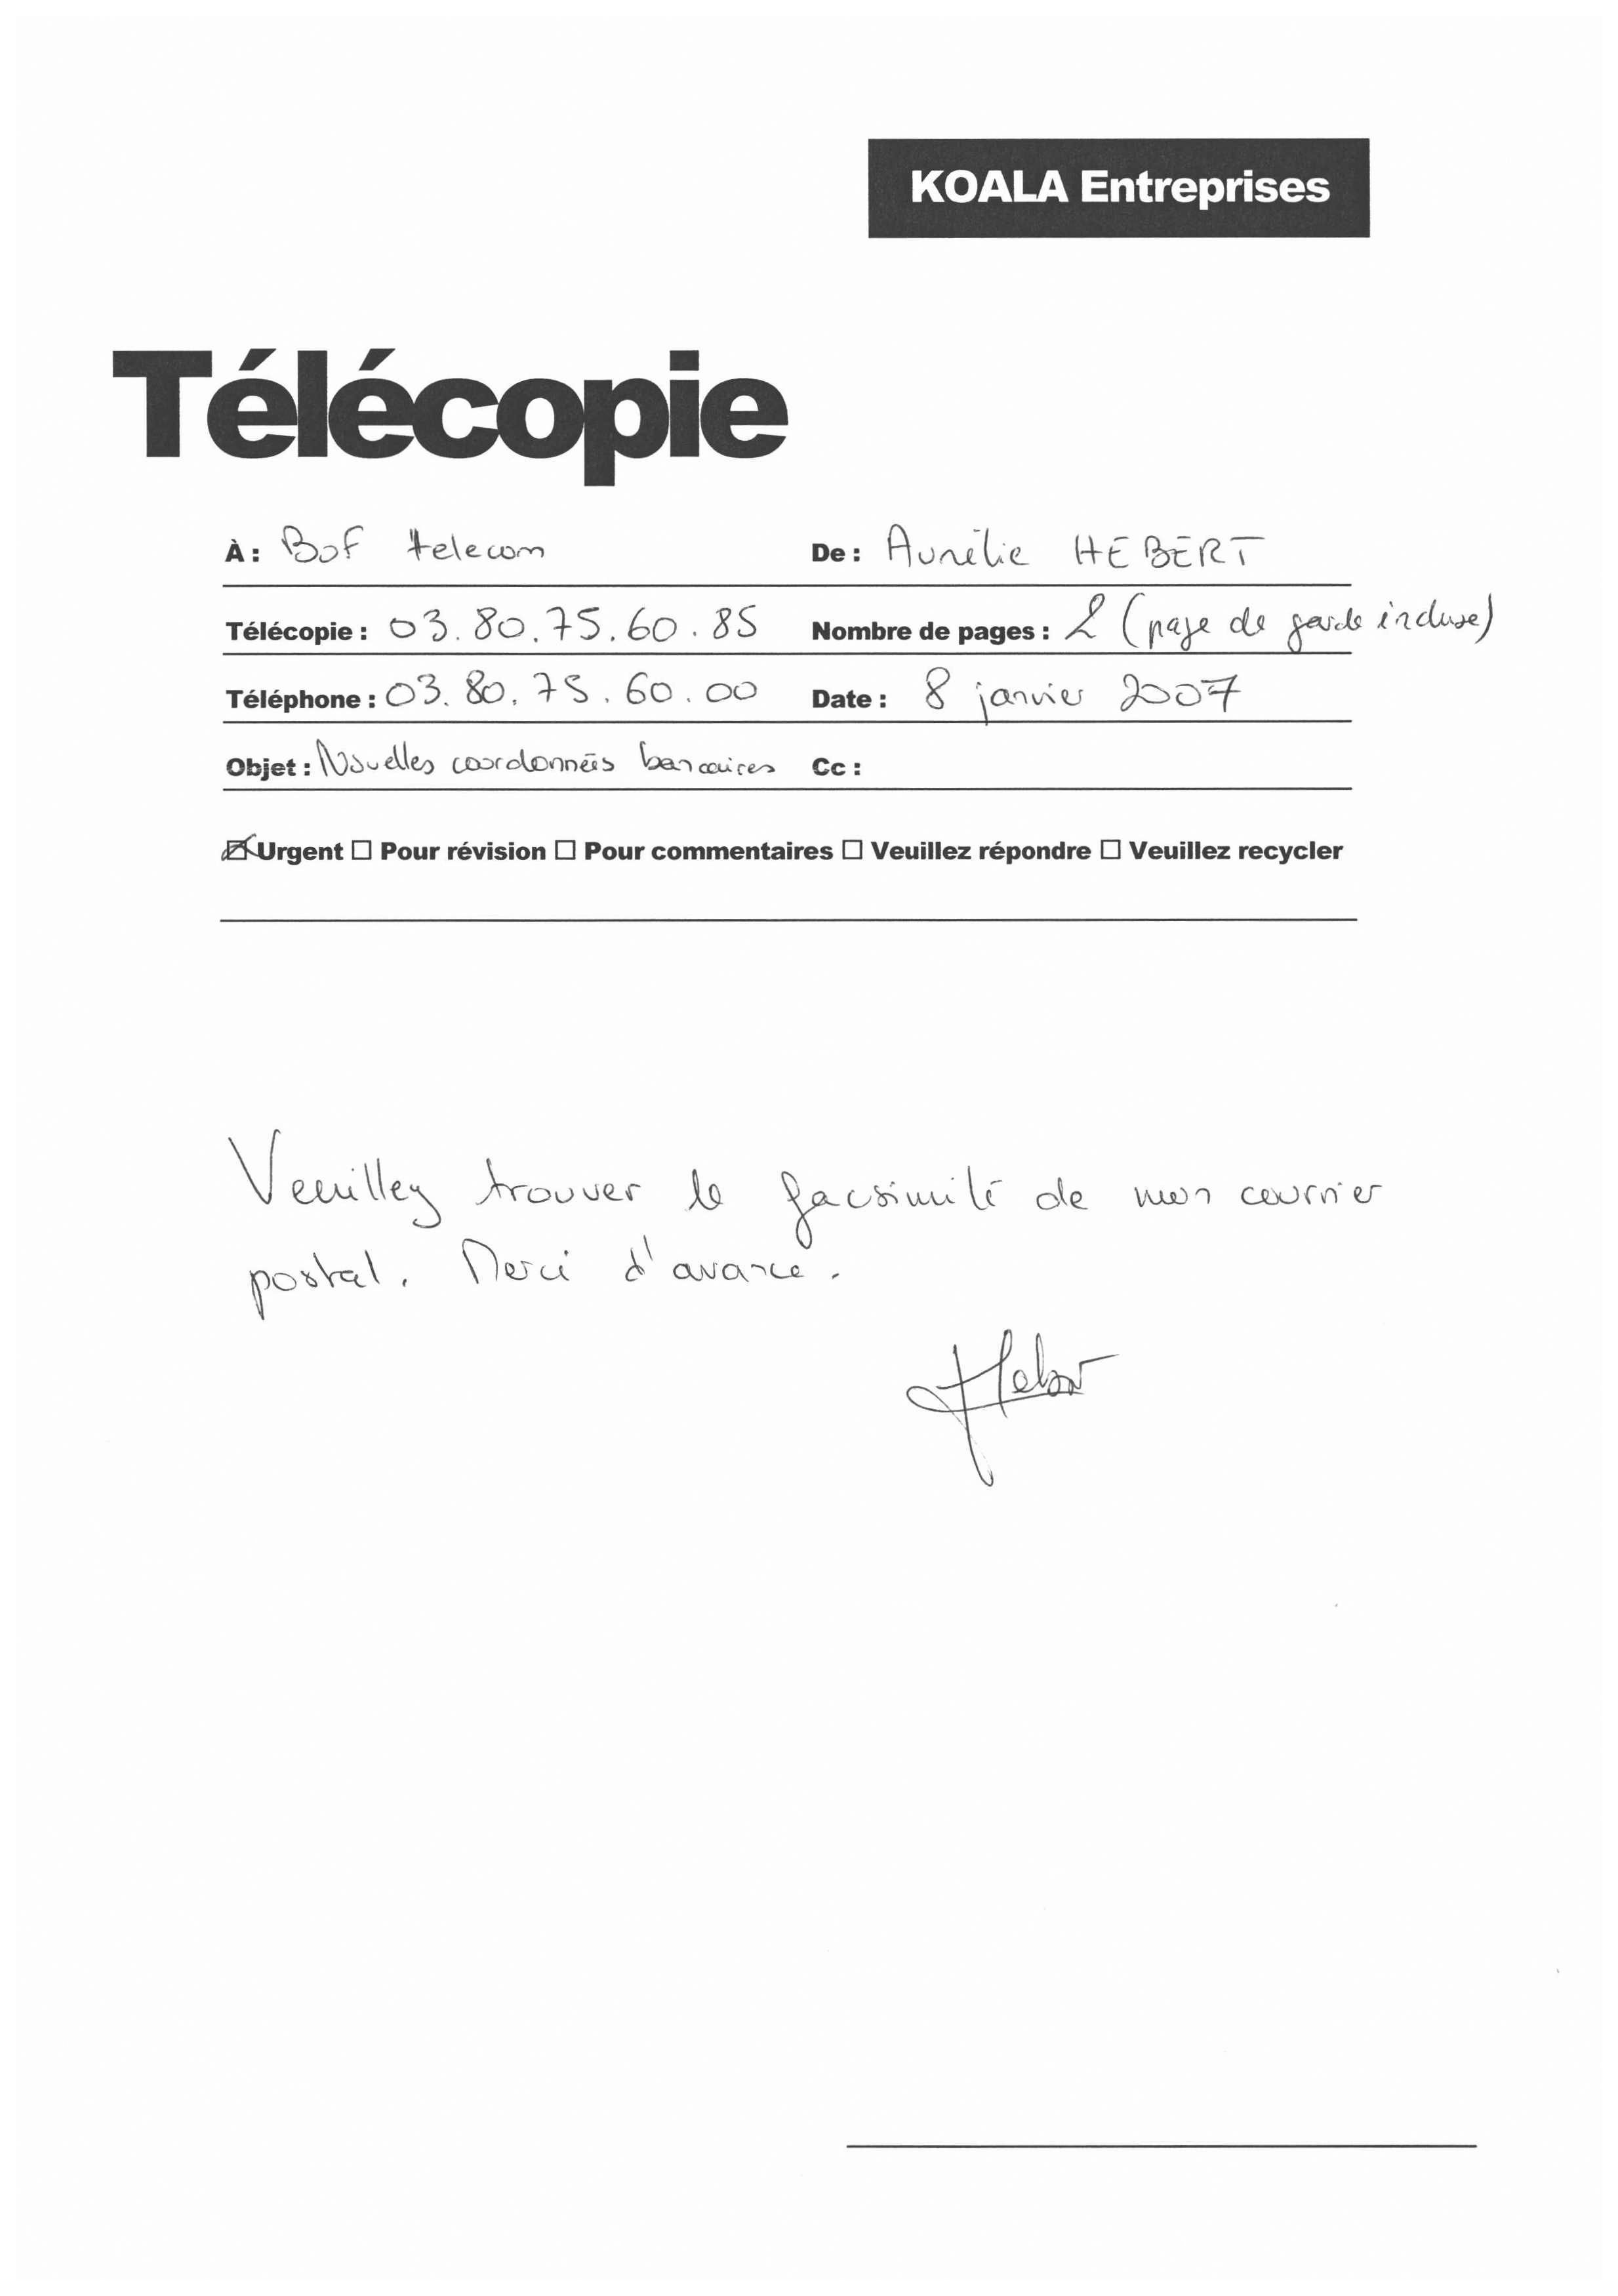 KOALA Entreprises
Télécopie
À : Bof telecom De : Aurélie HEBERT
Télécopie : 03.80.75.60.85 Nombre de pages : 2 (page de garde incluse)
Téléphone : 03.80.75.60.00 Date : 8 janvier 2007
Objet : Nouvelles coordonnées bancaires Cc :
☒ Urgent ☐ Pour révision ☐ Pour commentaires ☐ Veuillez répondre ☐ Veuillez recycler
Veuillez trouver le facsimilé de mon courrier
postal. Merci d'avance.
Hebert